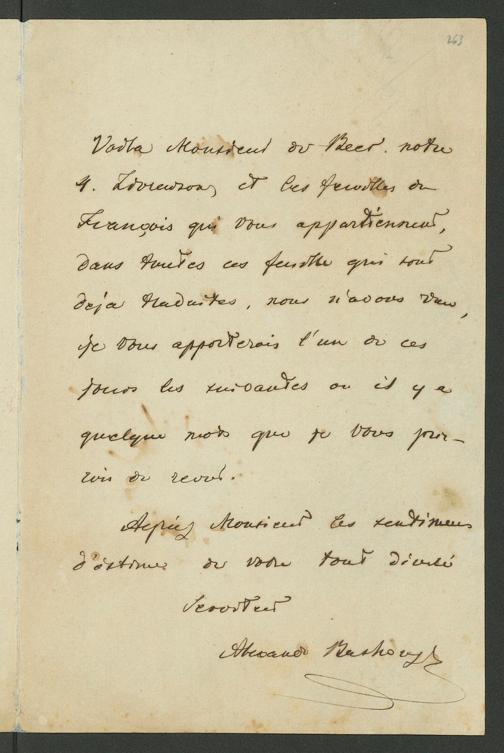 263
Voila Monsieur de Beer. notre
4. Livraison, et les feuilles du
François qui vous appartiennent,
dans toutes ces feuille qui sont
deja traduites, nous n'avons rien,
je vous apporterais l'un de ces
jours les suivantes ou il y a
quelque mots que je vous prie-
rois de revoir.
Agréez Monsieur les sentimens
d'estime de votre tout devoué
Serviteur
Alexand